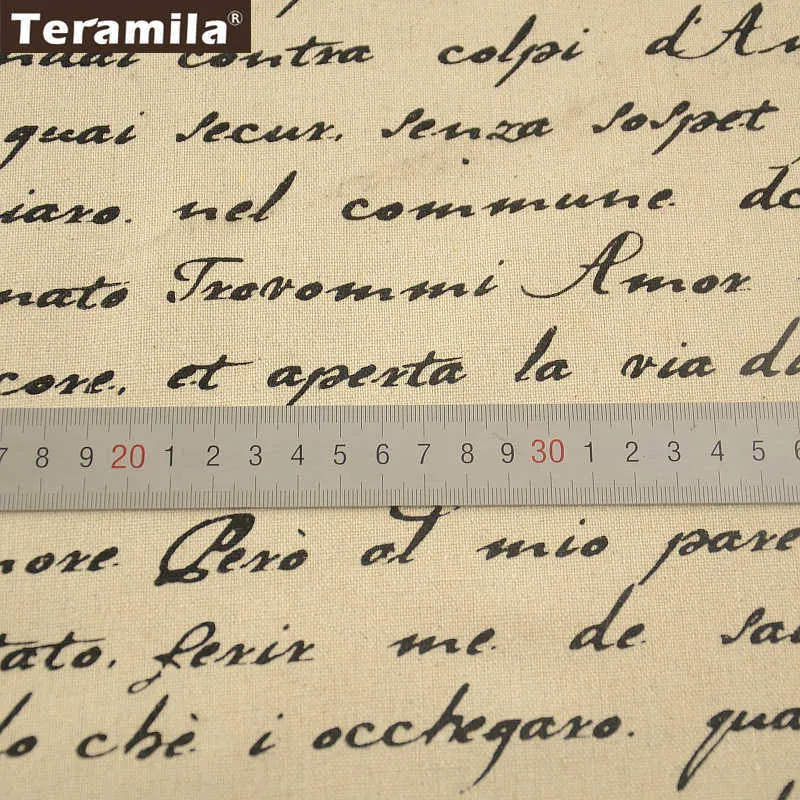 Teramila®
contra colpi d'A
quai secur. senza sospet
iaro. nel commune do
nato Trovommi Amor
core. et aperta la via da
7 8 9 20 1 2 3 4 5 6 7 8 9 30 1 2 3 4 5 6
nore. Però al mio pare
tato. ferir me de sa
lo chè i occhegaro. qua